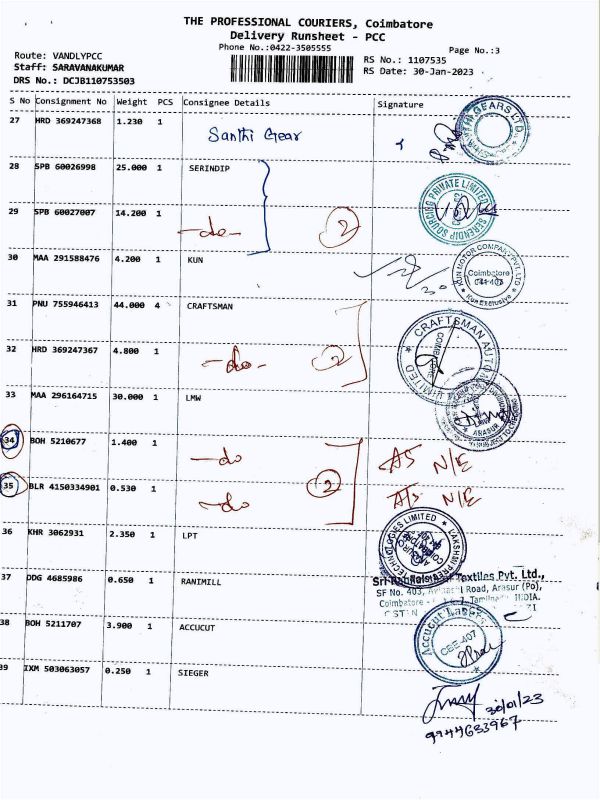 THE PROFESSIONAL COURIERS, Coimbatore
Delivery Runsheet - PCC
Phone No.:0422-3505555
Page No.:3
Route: VANDLYPCC
Staff: SARAVANAKUMAR
DRS No.: DCJB110753503
RS No.: 1107535
RS Date: 30-Jan-2023
S No Consignment No Weight PCS Consignee Details Signature
27 HRD 369247368 1.230 1 Santhi Gear
GEARS LTD.
28 SPB 60026998 25.000 1 SERINDIP
SERENDIP SOURCING PRIVATE LIMITED
29 SPB 60027007 14.200 1 -do- 2
30 MAA 291588476 4.200 1 KUN
KUN MOTOR COMPANY PVT LTD
Coimbatore
641 407
Kun Exclusive
31 PNU 755946413 44.000 4 CRAFTSMAN
CRAFTSMAN AUTOM LIMITED
32 HRD 369247367 4.800 1 -do- 2
33 MAA 296164715 30.000 1 LMW
ARASUR
34 BOH 5210677 1.400 1 -do A/S N/E
2
35 BLR 4150334901 0.530 1 -do A/S N/E
36 KHR 3062931 2.350 1 LPT
37 DDG 4685986 0.650 1 RANIMILL
Textiles Pvt. Ltd.,
SF No. 403, Road, Arasur (Po),
Coimbatore - INDIA.
38 BOH 5211707 3.900 1 ACCUCUT
Accucut Laser
CBE-407
39 IXM 503063057 0.250 1 SIEGER
30/01/23
9944633967